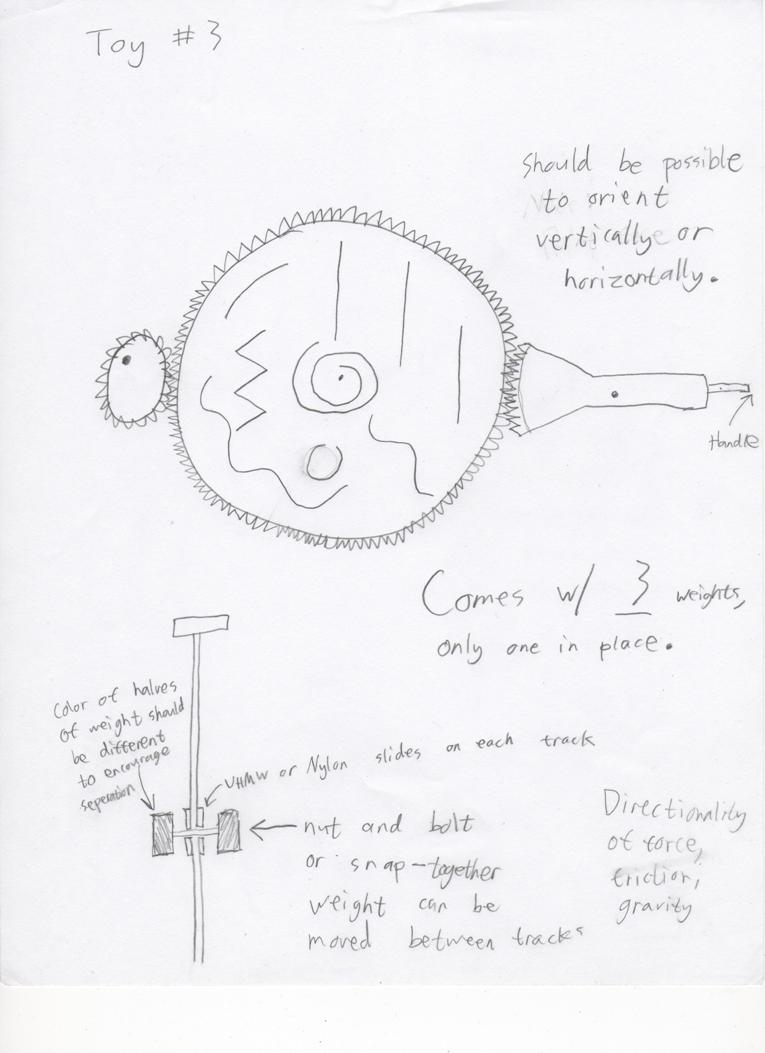 Toy # 3
should be possible
to orient
vertically or
horizontally.
Handle
Comes w/ 3 weights,
only one in place.
Color of halves
of weight should
be different
to encourage
seperation
VHMW or Nylon slides on each track
nut and bolt
or snap-together
weight can be
moved between tracks
Directionality
of force,
friction,
gravity